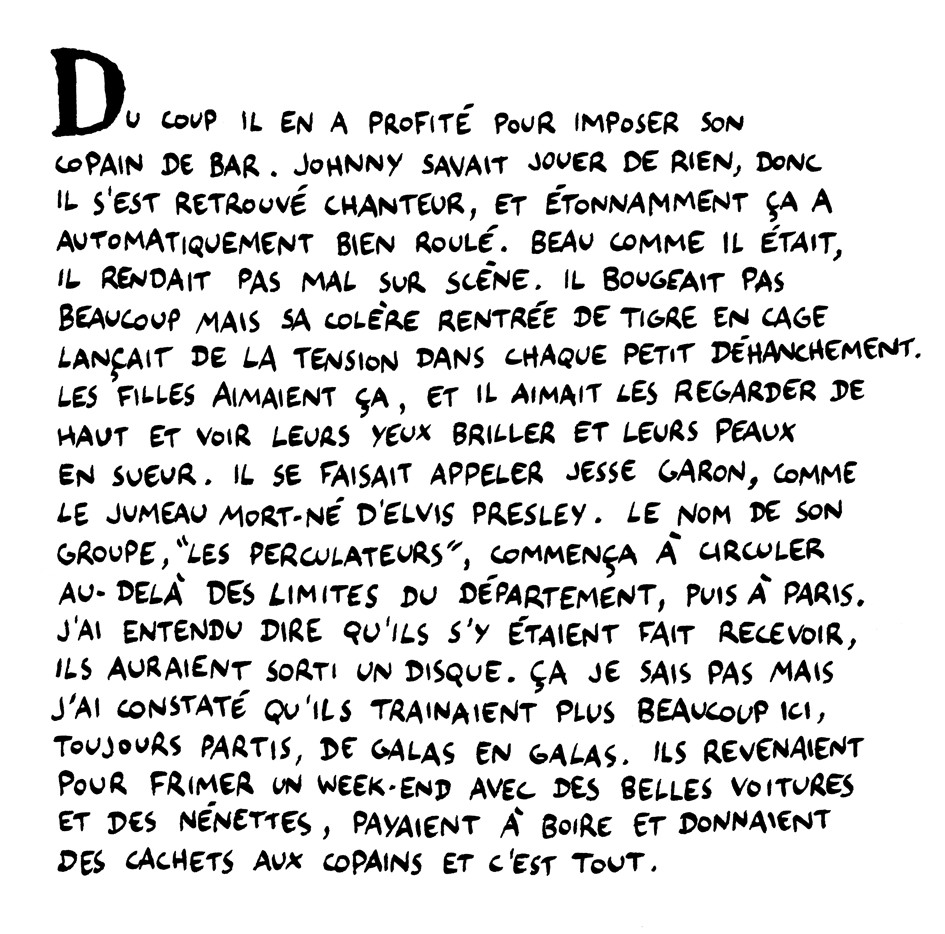 DU COUP IL EN A PROFITÉ POUR IMPOSER SON
COPAIN DE BAR. JOHNNY SAVAIT JOUER DE RIEN, DONC
IL S'EST RETROUVÉ CHANTEUR, ET ÉTONNAMMENT ÇA A
AUTOMATIQUEMENT BIEN ROULÉ. BEAU COMME IL ÉTAIT,
IL RENDAIT PAS MAL SUR SCÈNE. IL BOUGEAIT PAS
BEAUCOUP MAIS SA COLÈRE RENTRÉE DE TIGRE EN CAGE
LANÇAIT DE LA TENSION DANS CHAQUE PETIT DÉHANCHEMENT.
LES FILLES AIMAIENT ÇA, ET IL AIMAIT LES REGARDER DE
HAUT ET VOIR LEURS YEUX BRILLER ET LEURS PEAUX
EN SUEUR. IL SE FAISAIT APPELER JESSE GARON, COMME
LE JUMEAU MORT-NÉ D'ELVIS PRESLEY. LE NOM DE SON
GROUPE, "LES PERCULATEURS", COMMENÇA À CIRCULER
AU-DELÀ DES LIMITES DU DÉPARTEMENT, PUIS À PARIS.
J'AI ENTENDU DIRE QU'ILS S'Y ÉTAIENT FAIT RECEVOIR,
ILS AURAIENT SORTI UN DISQUE. ÇA JE SAIS PAS MAIS
J'AI CONSTATÉ QU'ILS TRAINAIENT PLUS BEAUCOUP ICI,
TOUJOURS PARTIS, DE GALAS EN GALAS. ILS REVENAIENT
POUR FRIMER UN WEEK-END AVEC DES BELLES VOITURES
ET DES NÉNETTES, PAYAIENT À BOIRE ET DONNAIENT
DES CACHETS AUX COPAINS ET C'EST TOUT.